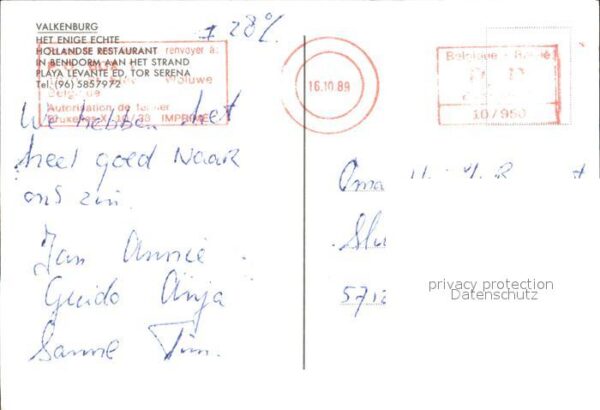 ± 28%
VALKENBURG
HET ENIGE ECHTE
HOLLANDSE RESTAURANT
IN BENIDORM AAN HET STRAND
PLAYA LEVANTE ED. TOR SERENA
Tel. (96) 5857972
renvoyer à:
Autorisation de fermer
Bruxelles X 10/33 IMPRIMÉ
16.10.89
Belgique - België
P.P.
10/950
We hebben het
heel goed naar
ons zin.
Jan Annie
Guido Anja
Sanne Tim.
Oma
Slu
571
privacy protection
Datenschutz